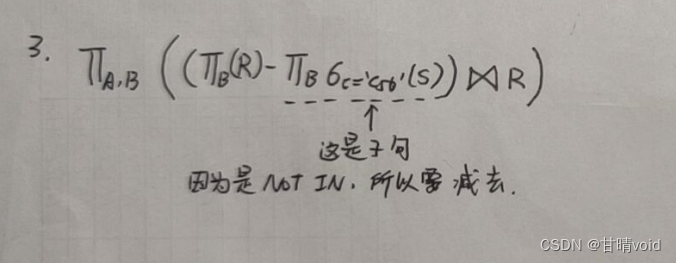 3. ΠA,B ((ΠB(R)-ΠB σC='C56'(S))⋈R)
这是子句
因为是 NOT IN,所以需减去.
CSDN @甘晴void